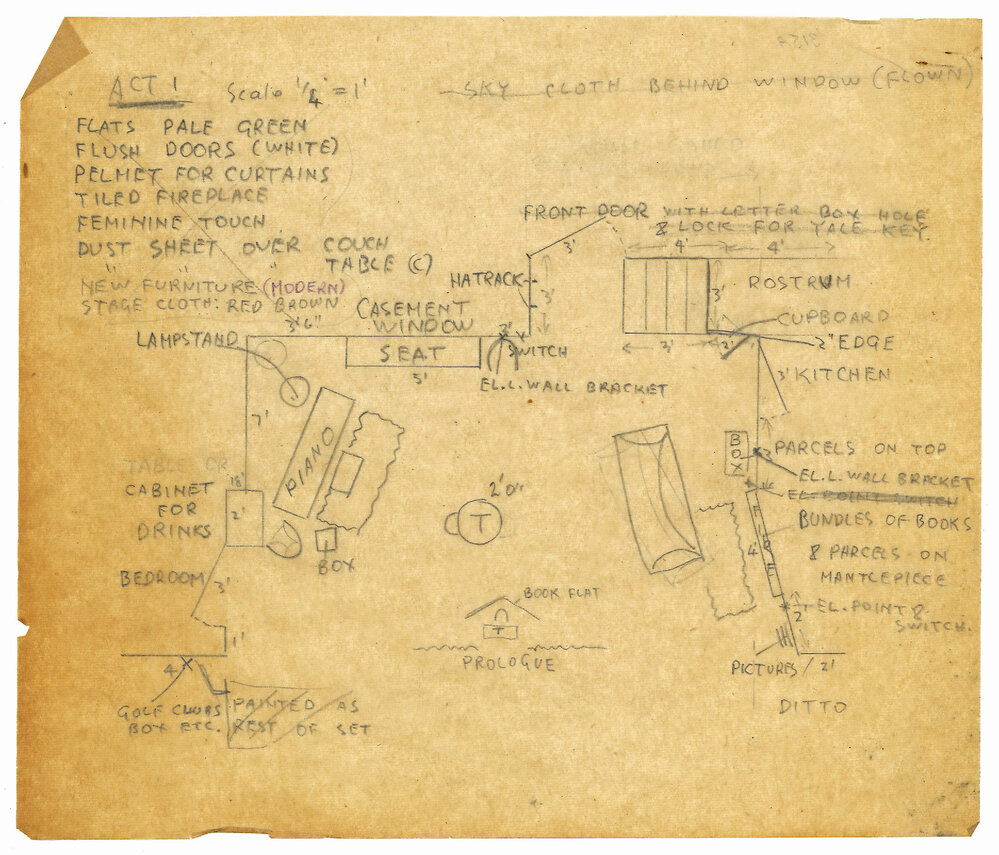 ACT 1 Scale 1/4" = 1'
SKY CLOTH BEHIND WINDOW (FLOWN)
FLATS PALE GREEN
FLUSH DOORS (WHITE)
PELMET FOR CURTAINS
TILED FIREPLACE
FEMININE TOUCH
DUST SHEET OVER COUCH
" " " TABLE (C)
NEW FURNITURE (MODERN)
STAGE CLOTH: RED BROWN
FRONT DOOR WITH LETTER BOX HOLE
& LOCK FOR YALE KEY.
3'
4' 4'
HATRACK
3'
3'
ROSTRUM
3'6"
CASEMENT
WINDOW
CUPBOARD
LAMPSTAND
SEAT
2'
SWITCH
3' 2'
2" EDGE
5'
EL.L. WALL BRACKET
3' KITCHEN
7'
PIANO
BOX
3'
PARCELS ON TOP
EL.L. WALL BRACKET
EL. POINT SWITCH
TABLE OR
CABINET
FOR
DRINKS
18"
2'
2'0"
T
BUNDLES OF BOOKS
& PARCELS ON
MANTLEPIECE
FIRE
4'
BOX
BEDROOM
3'
BOOK FLAT
T
2'
EL. POINT &
SWITCH.
1'
PROLOGUE
4'
PICTURES
2'
GOLF CLUBS
BOX ETC.
PAINTED AS
REST OF SET
DITTO